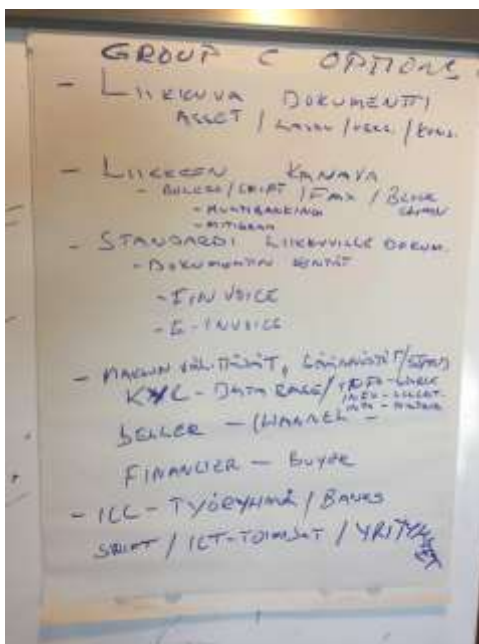 GROUP C OPTIONS
- LIIKKUVA DOKUMENTTI
ASSET / LASKU / VEKS. /
- LIIKKEEN KANAVA
- BOLERO / SWIFT / FAX / BLOCK CHAIN
- MULTIBANKING
- MITIGRAM
- STANDARDI LIIKKUVILLE DOKUM.
- DOKUMENTIN KENTÄT
- FINVOICE
- E-INVOICE
- MAKSUN VÄLITTÄJÄT,
KYC - DATA BASE /
SELLER - CHANNEL -
FINANCIER - BUYER
- ICC - TYÖRYHMÄ / BANKS
SWIFT / ICT-TOIMIJAT / YRITYKSET